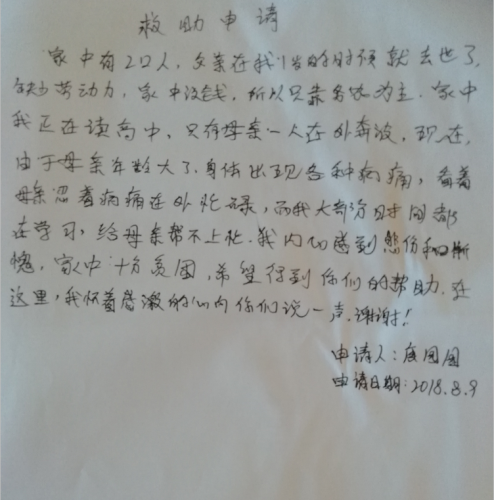 救助申请
家中有2口人,父亲在我1岁的时候就去世了,
缺少劳动力,家中没钱,所以只靠务农为主.家中
我正在读高中,只有母亲一人在外奔波,现在,
由于母亲年龄大了,身体出现各种病痛,看着
母亲忍着病痛在外忙碌,而我大部分时间都
在学习,给母亲帮不上忙.我内心感到悲伤和惭
愧,家中十分贫困,希望得到你们的帮助.在
这里,我怀着感激的心向你们说一声.谢谢!
申请人:庞团团
申请日期:2018.8.9